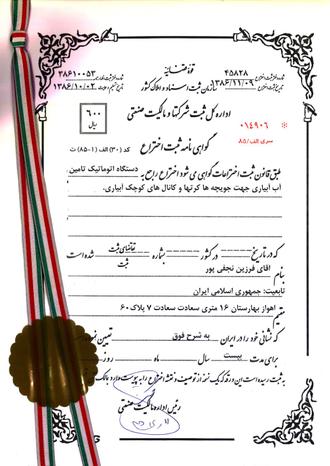 قوه قضائیه
سازمان ثبت اسناد و املاک کشور
شماره ثبت اختراع ۴۵۸۲۸
تاریخ ثبت اختراع ۱۳۸۶/۱۱/۰۹
۳۸۶۱۰۰۵۳
۱۳۸۶/۱۰/۰۲
اداره کل ثبت شرکتها و مالکیت صنعتی
۶۰۰
ریال
۰۱۴۹۰۶
سری الف/۸۵
گواهی نامه ثبت اختراع
کد (۳۰) الف (۱-۸۵) ث
طبق قانون ثبت اختراعات گواهی می شود اختراع راجع به دستگاه اتوماتیک تامین
آب ابیاری جهت جویچه ها کرتها و کانال های کوچک ابیاری.
که در تاریخ در کشور بشماره تقاضای ثبت شده است
ثبت
بنام اقای فرزین نجفی پور
تابعیت: جمهوری اسلامی ایران
مقیم اهواز بهارستان ۱۶ متری سعادت سعادت ۷ پلاک ۶۰
که نشانی خود را در ایران به شرح فوق تعیین نموده
برای مدت بیست سال ماه روز
به ثبت رسیده است این ورقه که یک نسخه از توصیف و نقشه اختراع را به پیوست دارد به مالک
رئیس اداره مالکیت صنعتی